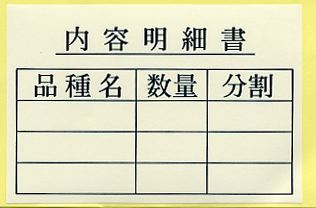 内容明細書
品種名 数量 分割